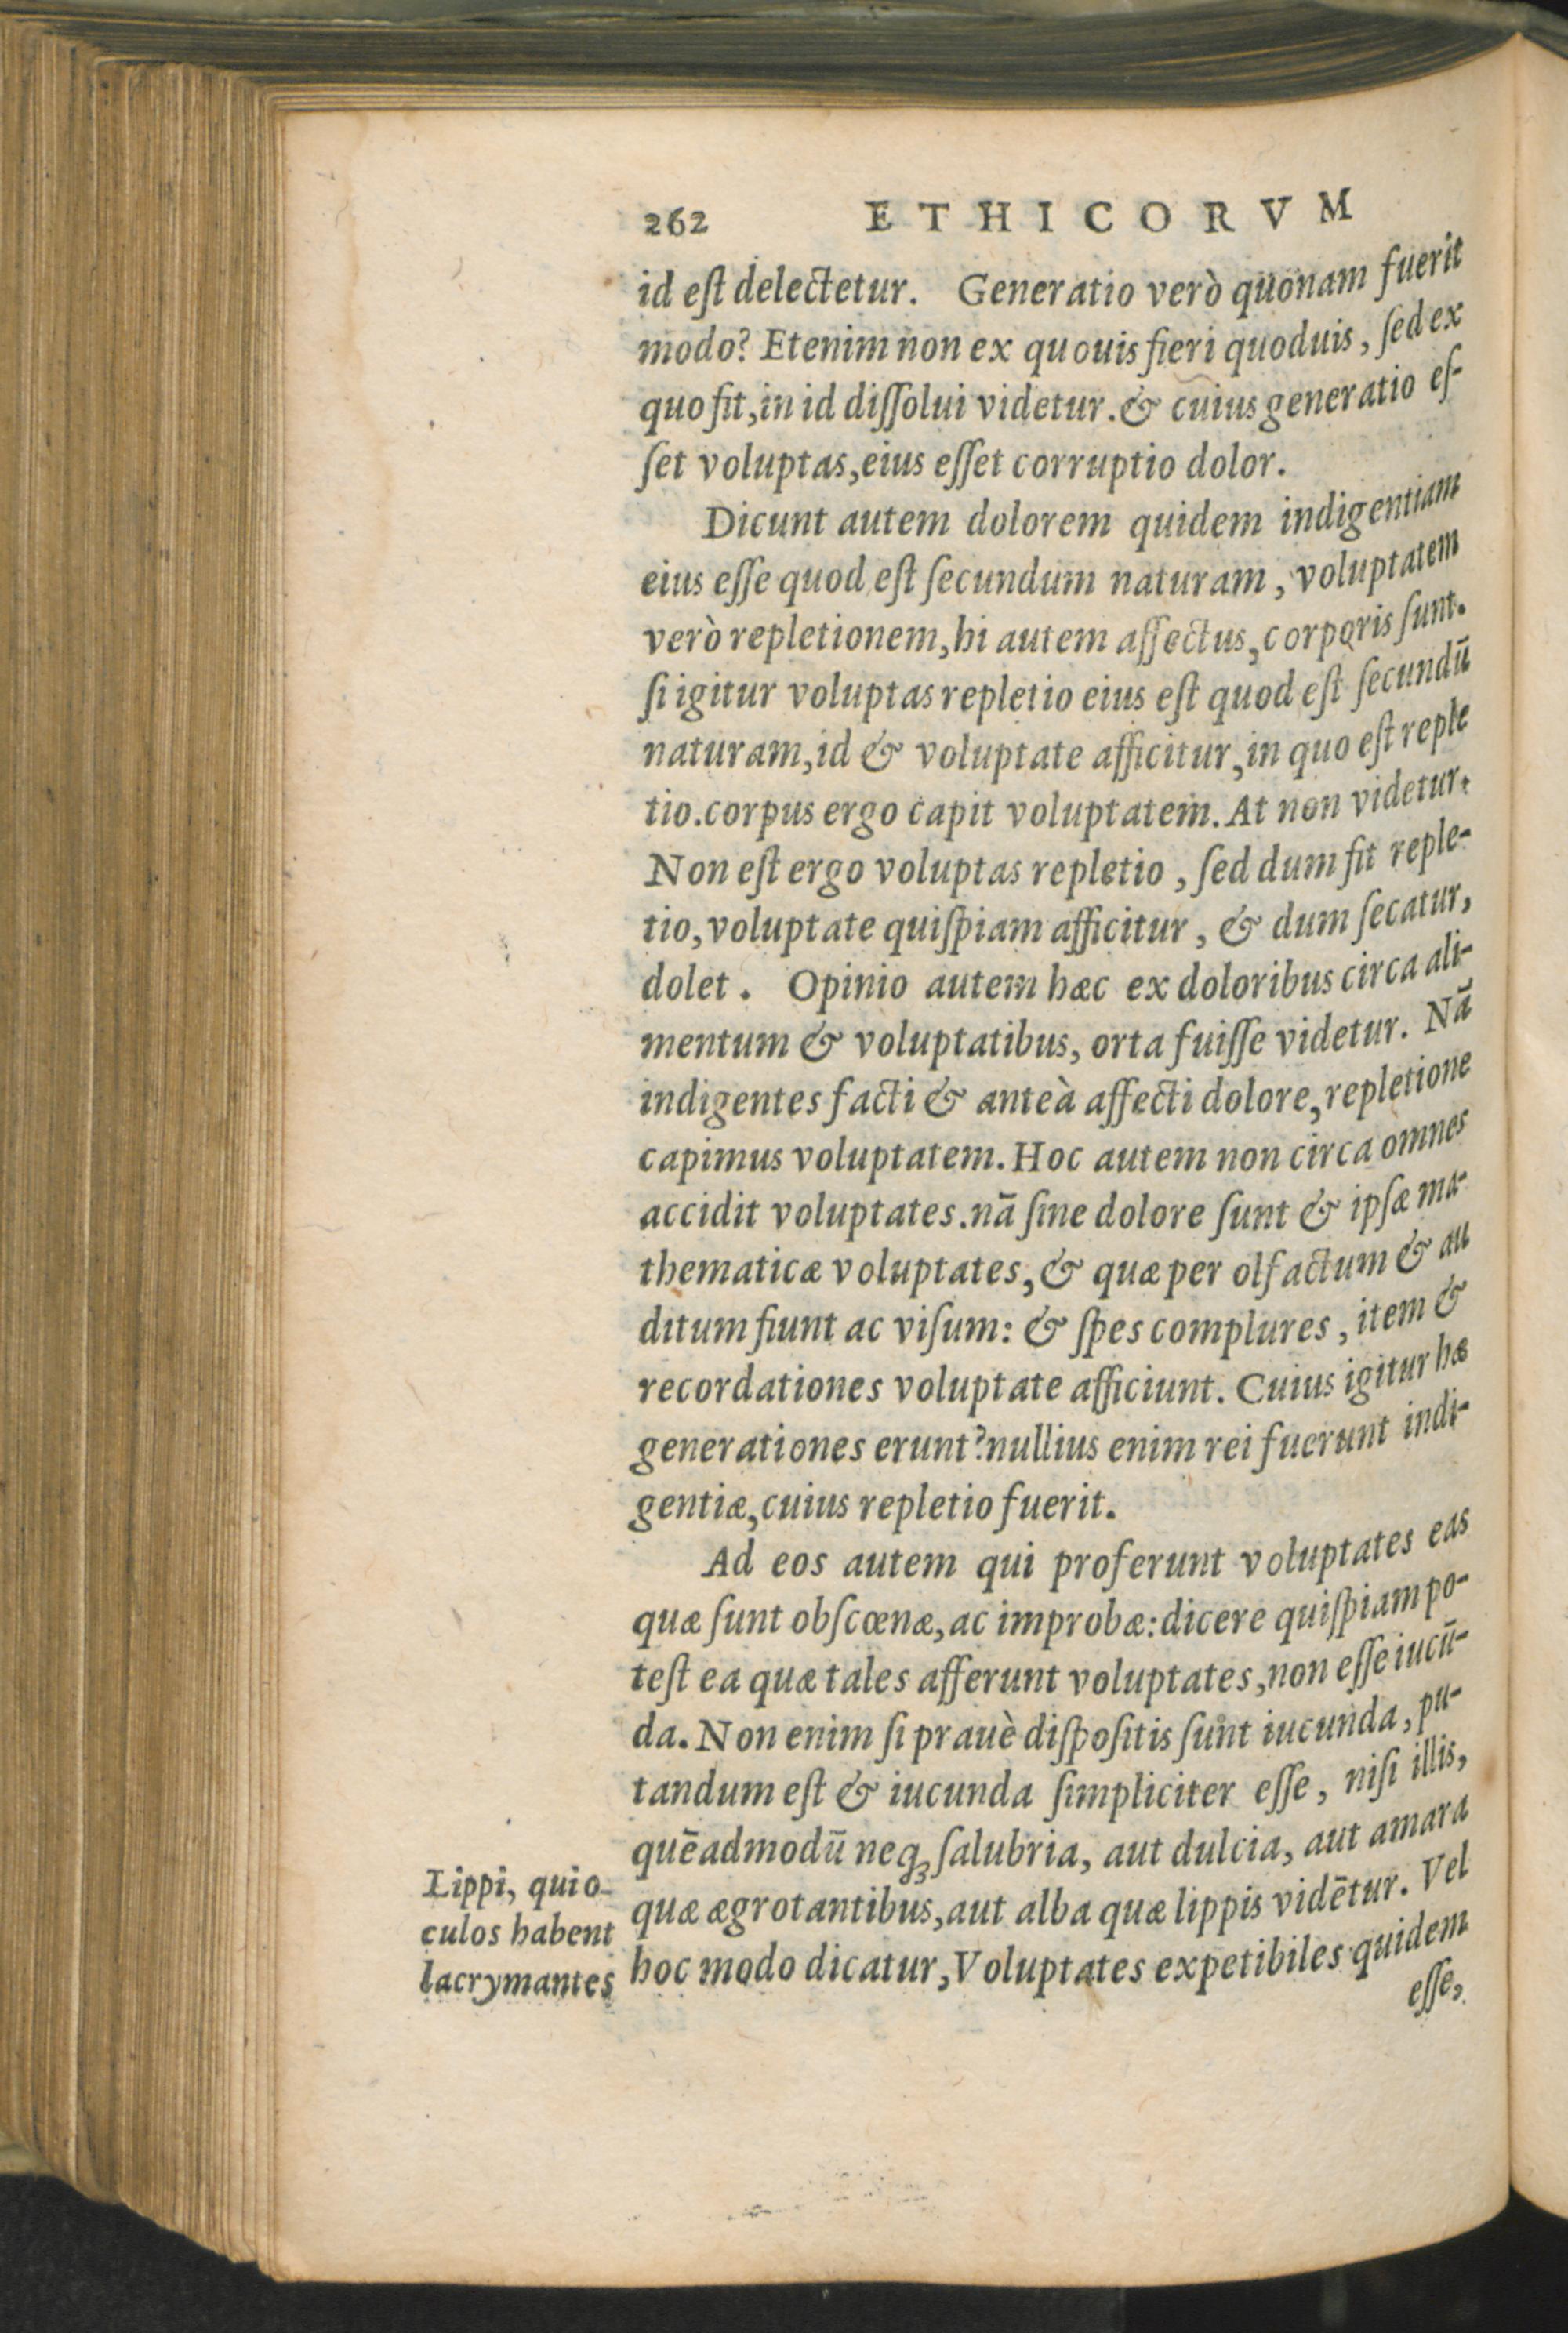 262 ETHICORVM
id eſt delectetur. Generatio verò quonam fuerit
modo? Etenim non ex quouis fieri quoduis, ſed ex
quo fit, in id diſſolui videtur. & cuius generatio eſ-
ſet voluptas, eius eſſet corruptio dolor.
Dicunt autem dolorem quidem indigentiam
eius eſſe quod eſt ſecundum naturam, voluptatem
verò repletionem, hi autem affectus, corporis ſunt.
ſi igitur voluptas repletio eius eſt quod eſt ſecundū
naturam, id & voluptate afficitur, in quo eſt reple
tio. corpus ergo capit voluptatem. At non videtur.
Non eſt ergo voluptas repletio, ſed dum fit reple-
tio, voluptate quiſpiam afficitur, & dum ſecatur,
dolet. Opinio autem hæc ex doloribus circa ali-
mentum & voluptatibus, orta fuiſſe videtur. Nā
indigentes facti & anteà affecti dolore, repletione
capimus voluptatem. Hoc autem non circa omnes
accidit voluptates. nā ſine dolore ſunt & ipſæ ma-
thematicæ voluptates, & quæ per olfactum & au
ditum fiunt ac viſum: & ſpes complures, item &
recordationes voluptate afficiunt. Cuius igitur hæ
generationes erunt? nullius enim rei fuerunt indi-
gentiæ, cuius repletio fuerit.
Ad eos autem qui proferunt voluptates eas
quæ ſunt obſcœnæ, ac improbæ: dicere quiſpiam po-
teſt ea quæ tales afferunt voluptates, non eſſe iucū-
da. Non enim ſi prauè diſpoſitis ſunt iucunda, pu-
tandum eſt & iucunda ſimpliciter eſſe, niſi illis,
quēadmodū neqꝫ ſalubria, aut dulcia, aut amara
quæ ægrotantibus, aut alba quæ lippis vidētur. Vel
hoc modo dicatur, Voluptates expetibiles quidem
eſſe,
Lippi, qui o-
culos habent
lacrymantes